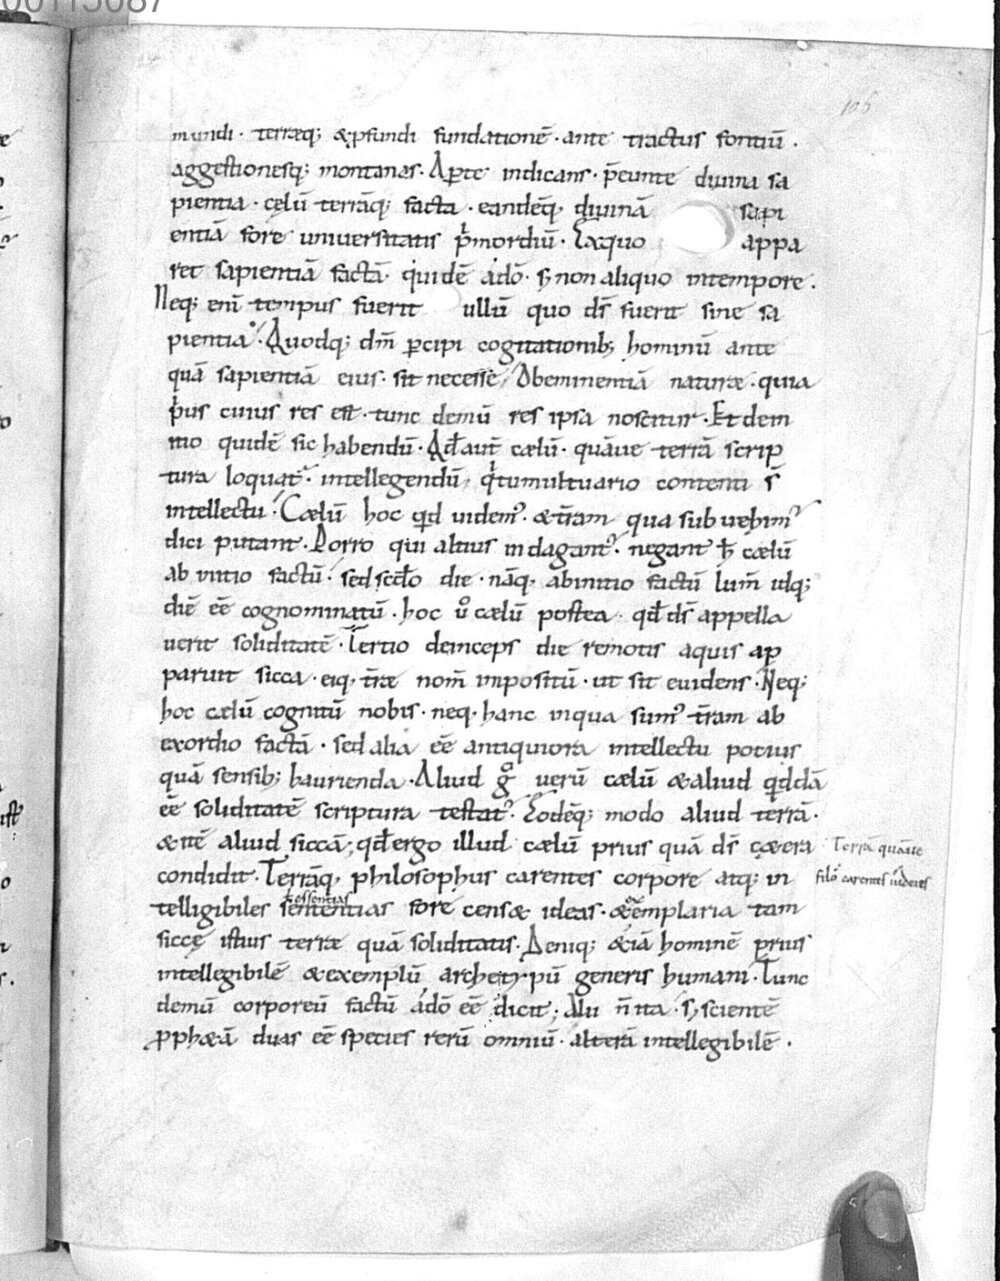 00115087
105
mundi · terræq; &ꝓfundi fundationē · ante tractus fontiū .
aggestionesq; montanas · Aꝑte indicans · p̄eunte diuina sa
pientia · cęlū terrāq; facta · eandēq; diuinā sapi
entiā fore uniuersitatis pͥmordiū · Exquo appa
ret sapientiā factā · quidē ádō · sꝫ non aliquo intempore .
Neq; enī tempus fuerit ullū quo dſ̄ fuerit sine sa
pientia · Quodq; dm̄ ꝑcipi cogitationibꝫ hominū ante
quā sapientiā eius · sit necesse, Obeminentiā naturæ · quia
pͥus cuius res est · tunc demū res ipsa noscitur · Et dem
mo quidē sic habendū · Ad̄ aut̄ cælū · quāue terrā scrip
tura loquat᷑ · intellegendū, qͥtumultuario contenti s̄
intellectu · Cælū hoc qd uidemꝰ · &tr̄am qua sub uehimꝰ
dici putant · Porro qui altius indagant᷑ · negant h̄ cælū
ab initio factū · sed scd̄o die · nāq, abinitio factū lum̄ idq;
diē eē cognominatū · hoc ů cælū postea · qd̄ dſ̄ appella
uerit soliditatē · Tertio deinceps die remotis aquis ap
paruit sicca · eiq, tr̄æ nom̄ impositū · ut sit euidens · Neq;
hoc cælū cognitū nobis · neq · hanc inqua sumꝰ tr̄am ab
exordio factā · sed alia eē antiquiora intellectu potius
quā sensibꝫ haurienda · Aliud gͦ uerū cælū &aliud qddā
eē soliditatē scriptura testat᷑ · Eodēq; modo aliud terrā ·
&itē aliud siccā; qd̄ ergo illud cælū prius quā dſ̄ cætera
Terrā quāue
condidit · Terrāq, philosophus carentes corpore atq; in
filo᷒ carentes uideres
ł essentias
telligibiles sententias fore cens& ideas · &exemplaria tam
siccę istius terræ quā soliditatis · Deniq; &iā hominē prius
intellegibilē &exemplū archetypū generis humani · Tunc
demū corporeū factū ádō eē dicit; Alii n̄ ita · sꝫ scientē
ꝓph&ā duas eē species rerū omniū · alterā intellegibilē .